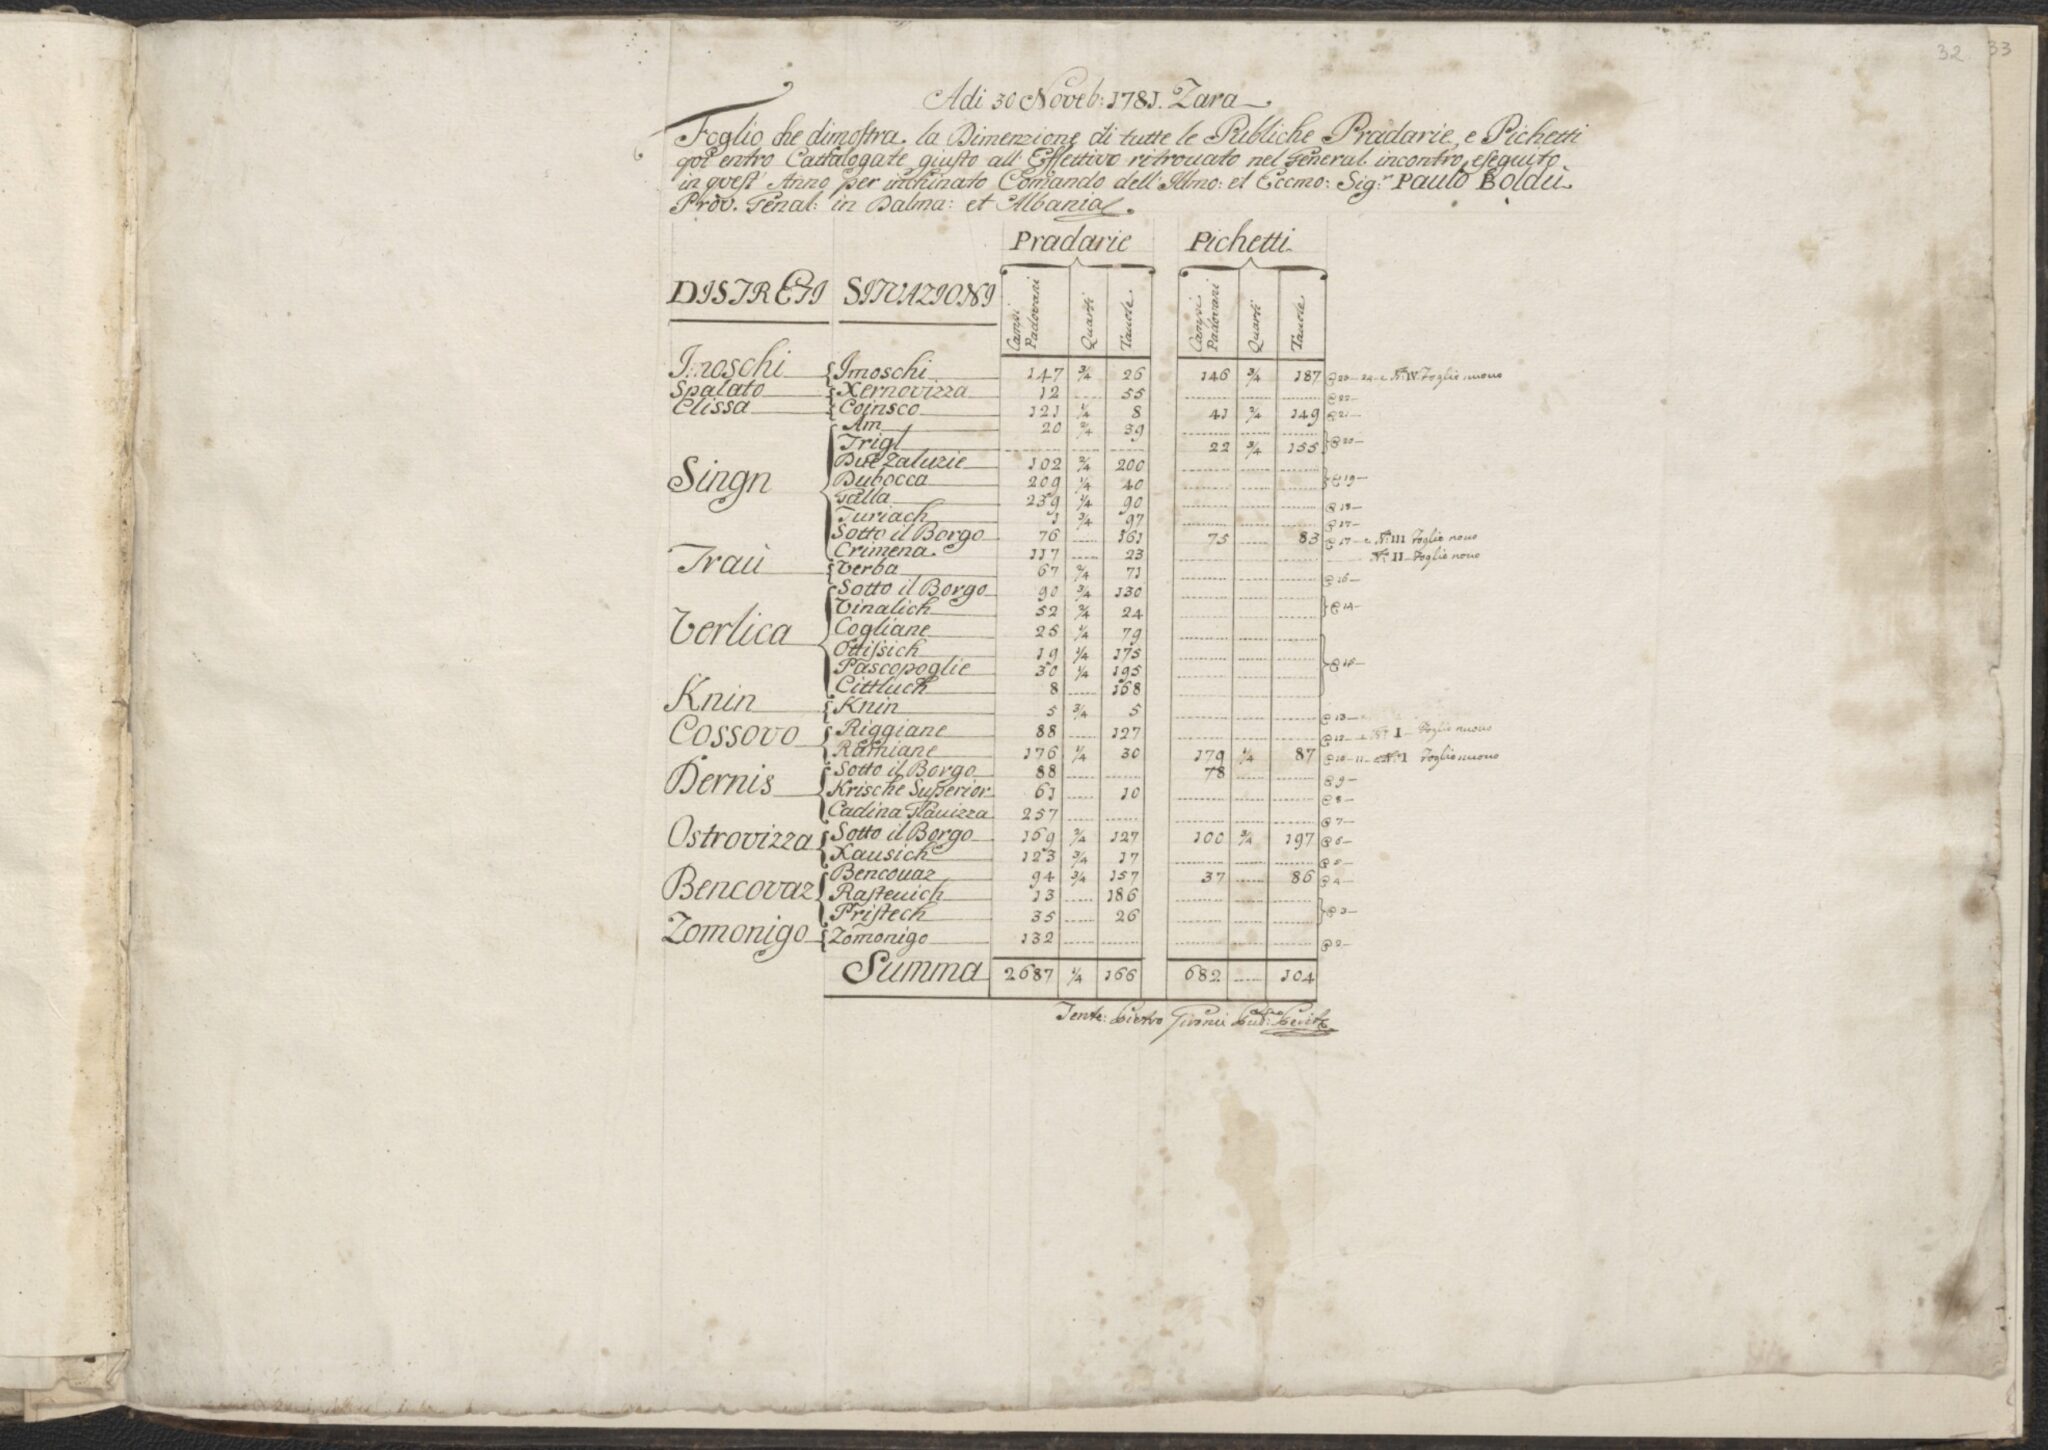 32 33
Adi 30 Noveb: 1781. Zara
Foglio che dimostra la Dimenzione di tutte le Publiche Pradarie, e Pichetti
qvì entro Cattalogate giusto all' Effettivo ritrouato nel General incontro eseguito
in qvest' Anno per inchinato Comando dell' Illmo: et Eccmo: Sig:r Paulo Boldù
Prov: Genal: in Dalma: et Albania.
Pradarie Pichetti
DISTRETI SITUAZIONI Campi Padovani Quarti Tauole Campi Padovani Quarti Tauole
Imoschi Imoschi 147 3/4 26 146 3/4 187 @ 23 - 24 - e N.o IV Foglio nuouo
Spalato Xernovizza 12 55 @ 22
Clissa Coinsco 121 1/4 8 41 2/4 149 @ 21
Singn Am 20 2/4 39 @ 20
Trigl 22 3/4 155
Due Zaluzie 102 2/4 200 @ 19
Dubocca 209 1/4 40
Galla 239 1/4 90 @ 18
Turiach 1 3/4 97 @ 17
Sotto il Borgo 76 161 75 83 @ 17 - e N.o III Foglio nouo
Crimena 117 23 N.o II Foglio nouo
Traù Verba 67 2/4 71 @ 16
Verlica Sotto il Borgo 90 3/4 130 @ 14
Vinalich 52 2/4 24
Cogliane 25 1/4 79 @ 15
Ottissich 19 1/4 175
Pascopoglie 30 1/4 195
Cittluck 8 168
Knin Knin 5 3/4 5 @ 13
Cossovo Riggiane 88 127 @ 12 - e N.o I Foglio nuouo
Ramiane 176 1/4 30 179 1/4 87 @ 10 - 11 - e N.o I Foglio nuouo
Dernis Sotto il Borgo 88 78 @ 9
Krische Superior 61 10 @ 8
Cadina Glauizza 257 @ 7
Ostrovizza Sotto il Borgo 169 2/4 127 100 3/4 197 @ 6
Xausich 123 3/4 17 @ 5
Bencovaz Bencouaz 94 3/4 157 37 86 @ 4
Rasteuich 13 186 @ 3
Pristech 35 26
Zomonigo Zomonigo 132 @ 2
Summa 2687 1/4 166 682 104
Tente: Pietro